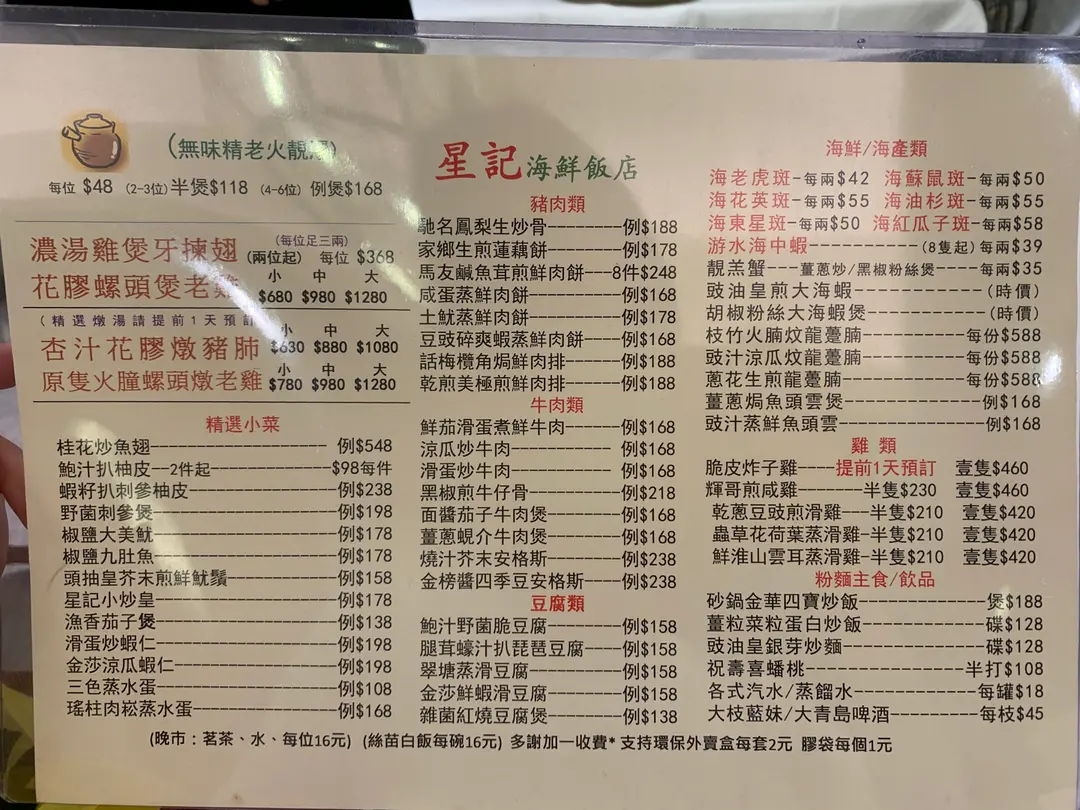 (無味精老火靚湯)
每位 $48 (2-3位)半煲$118 (4-6位) 例煲$168
濃湯雞煲牙揀翅 (兩位起) (每位足三兩) 每位 $368
花膠螺頭煲老雞 小 $680 中 $980 大 $1280
(精選燉湯請提前1天預訂
杏汁花膠燉豬肺 小 $630 中 $880 大 $1080
原隻火朣螺頭燉老雞 小 $780 中 $980 大 $1280
精選小菜
桂花炒魚翅------例$548
鮑汁扒柚皮--2件起------$98每件
蝦籽扒刺參柚皮------例$238
野菌刺參煲------例$198
椒鹽大美魷------例$178
椒鹽九肚魚------例$178
頭抽皇芥末煎鮮魷鬚------例$158
星記小炒皇------例$178
漁香茄子煲------例$138
滑蛋炒蝦仁------例$198
金莎涼瓜蝦仁------例$198
三色蒸水蛋------例$108
瑤柱肉崧蒸水蛋------例$168
星記海鮮飯店
豬肉類
馳名鳳梨生炒骨------例$188
家鄉生煎蓮藕餅------例$178
馬友鹹魚茸煎鮮肉餅---8件$248
咸蛋蒸鮮肉餅------例$168
土魷蒸鮮肉餅------例$178
豆豉碎爽蝦蒸鮮肉餅---例$168
話梅欖角焗鮮肉排------例$188
乾煎美極煎鮮肉排------例$188
牛肉類
鮮茄滑蛋煮鮮牛肉------例$168
涼瓜炒牛肉------例$168
滑蛋炒牛肉------例$168
黑椒煎牛仔骨------例$218
面醬茄子牛肉煲------例$168
薑蔥蜆介牛肉煲------例$168
燒汁芥末安格斯------例$238
金榜醬四季豆安格斯---例$238
豆腐類
鮑汁野菌脆豆腐------例$158
腿茸蠔汁扒琵琶豆腐---例$158
翠塘蒸滑豆腐------例$158
金莎鮮蝦滑豆腐------例$158
雜菌紅燒豆腐煲------例$138
海鮮/海產類
海老虎斑-每兩$42 海蘇鼠斑-每兩$50
海花英斑-每兩$55 海油杉斑-每兩$55
海東星斑-每兩$50 海紅瓜子斑-每兩$58
游水海中蝦------(8隻起)每兩$39
靚羔蟹---薑蔥炒/黑椒粉絲煲----每兩$35
豉油皇煎大海蝦------(時價)
胡椒粉絲大海蝦煲------(時價)
枝竹火腩炆龍躉腩------每份$588
豉汁涼瓜炆龍躉腩------每份$588
蔥花生煎龍躉腩------每份$588
薑蔥焗魚頭雲煲------例$168
豉汁蒸鮮魚頭雲------例$168
雞 類
脆皮炸子雞----提前1天預訂 壹隻$460
輝哥煎咸雞------半隻$230 壹隻$460
乾蔥豆豉煎滑雞---半隻$210 壹隻$420
蟲草花荷葉蒸滑雞-半隻$210 壹隻$420
鮮淮山雲耳蒸滑雞-半隻$210 壹隻$420
粉麵主食/飲品
砂鍋金華四寶炒飯------煲$188
薑粒菜粒蛋白炒飯------碟$128
豉油皇銀芽炒麵------碟$128
祝壽喜蟠桃------半打$108
各式汽水/蒸餾水------每罐$18
大枝藍妹/大青島啤酒------每枝$45
(晚市：茗茶、水、每位16元) (絲苗白飯每碗16元) 多謝加一收費* 支持環保外賣盒每套2元 膠袋每個1元